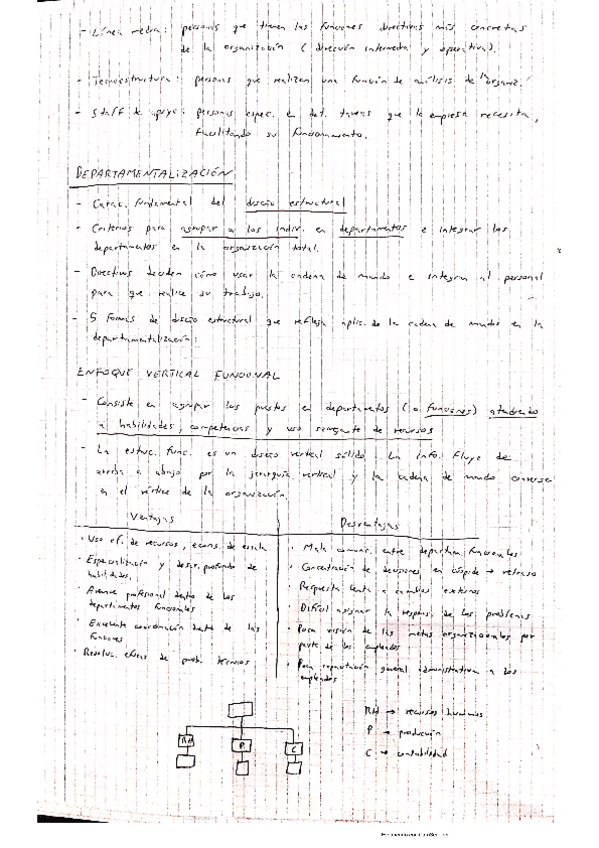 - Línea media: personas que tienen las funciones directivas más concretas
de la organización (dirección intermedia y operativa).
- Tecnoestructura: personas que realizan una función de análisis de la organiz.
- Staff de apoyo: personas espec. en det. tareas que la empresa necesita,
facilitando su funcionamiento.
DEPARTAMENTALIZACIÓN
- Carac. fundamental del diseño estructural
- Criterios para agrupar a los indiv. en departamentos e integrar los
departamentos en la organización total.
- Directivos deciden cómo usar la cadena de mando e integran al personal
para que realice su trabajo.
- 5 formas de diseño estructural que reflejan aplic. de la cadena de mando en la
departamentalización:
ENFOQUE VERTICAL FUNCIONAL
- Consiste en agrupar los puestos en departamentos (o funciones) atendiendo
a habilidades, competencias y uso semejante de recursos
- La estruc. func. es un diseño vertical sólido. La info. fluye de
arriba a abajo por la jerarquía vertical y la cadena de mando converge
en el vértice de la organización.
Ventajas
· Uso ef. de recursos, econs. de escala
· Especialización y desar. profundo de
habilidades,
· Avance profesional dentro de los
departamentos funcionales
· Excelente coordinación dentro de las
funciones
· Resoluc. eficaz de prob. técnicos
Desventajas
· Mala comunic. entre departam. funcionales
· Concentración de decisiones en cúspide → retraso
· Respuesta lenta a cambios externos
· Difícil asignar la respons. de los problemas
· Poca visión de las metas organizacionales por
parte de los empleados
· Poca capacitación general administrativa a los
empleados
RH
P
C
RH → recursos humanos
P → producción
C → contabilidad